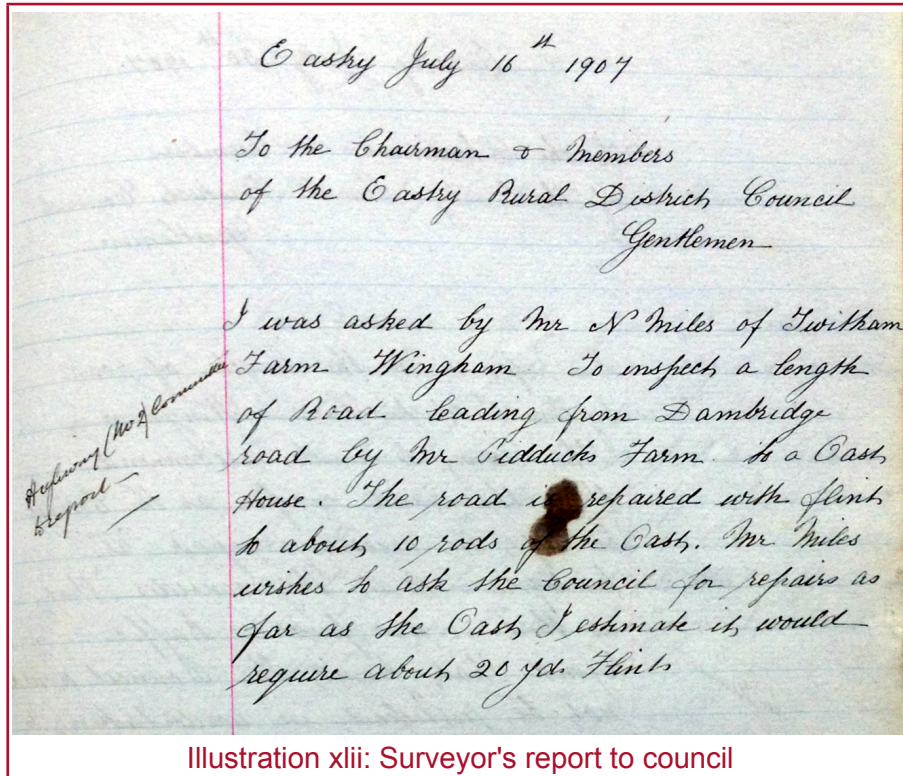 Eastry July 16th 1907
To the Chairman & Members
of the Eastry Rural District Council
Gentlemen
I was asked by Mr N Miles of Twitham
Farm Wingham To inspect a length
of Road leading from Dambridge
road by Mr Pidducks Farm. to a Oast
House. The road is repaired with flint
to about 10 rods of the Oast. Mr Miles
wishes to ask the Council for repairs as
far as the Oast I estimate it would
require about 20 yds Flint
Highway (No 2) Committee
to report—
Illustration xlii: Surveyor's report to council